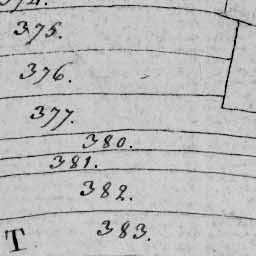 374.
375.
376.
377.
380.
381.
382.
383.
T